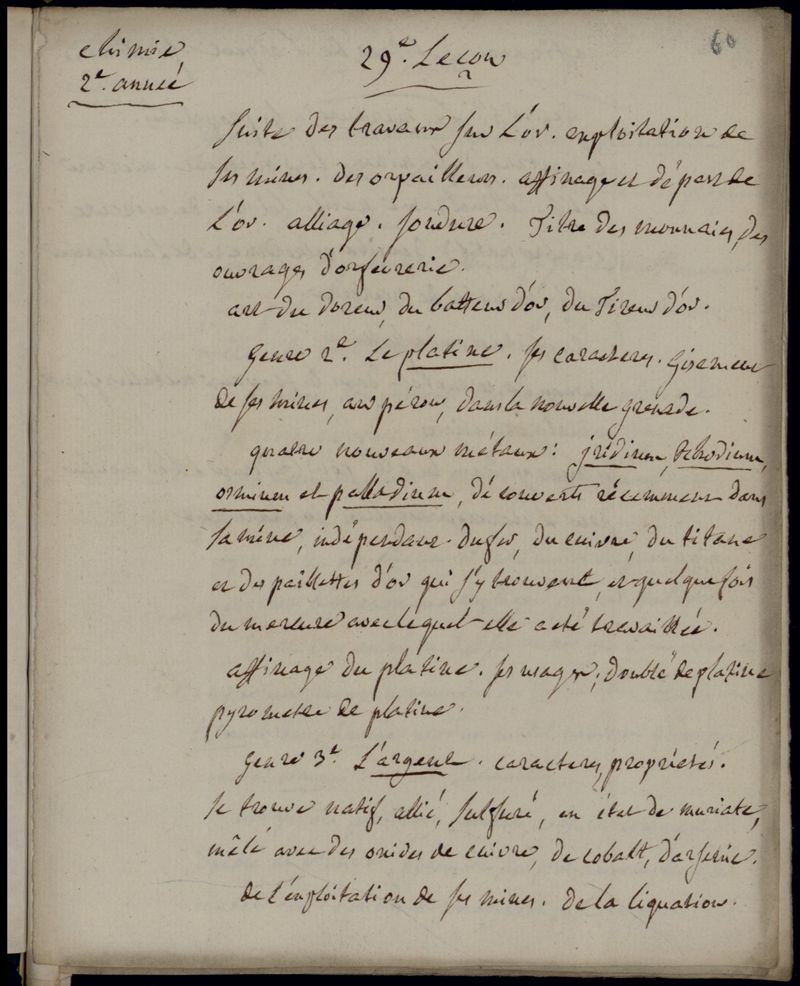 chimie
2e. année
29e. Leçon
60
suite des travaux sur L'or. exploitation de
ses mines. des orpailleurs. affinage et départ de
L'or. alliage. soudure. Titre des monnaies, des
ouvrages d'orfevrerie.
art du doreur, du batteur d'or, du Tireur d'or.
genre 2e. Le platine. ses caracteres. Gisement
de ses mines, au pérou, dans la nouvelle grenade.
quatre nouveaux métaux: jridium, Rhodium,
osmium et palladium, découverts récemment dans
sa mine, indépendant. du fer, du cuivre, du titane
et des paillettes d'or qui s'y trouvent, et quelquefois
du mercure avec lequel elle a été travaillée.
affinage du platine. ses usages; doublé de platine
pyrometre de platine.
genre 3e. L'argent. caracteres, propriétés.
se trouve natif, allié, sulfuré, en état de muriate,
mêlé avec des oxides de cuivre, de cobalt, d'arsenic.
de l'exploitation de ses mines. de la liquation.